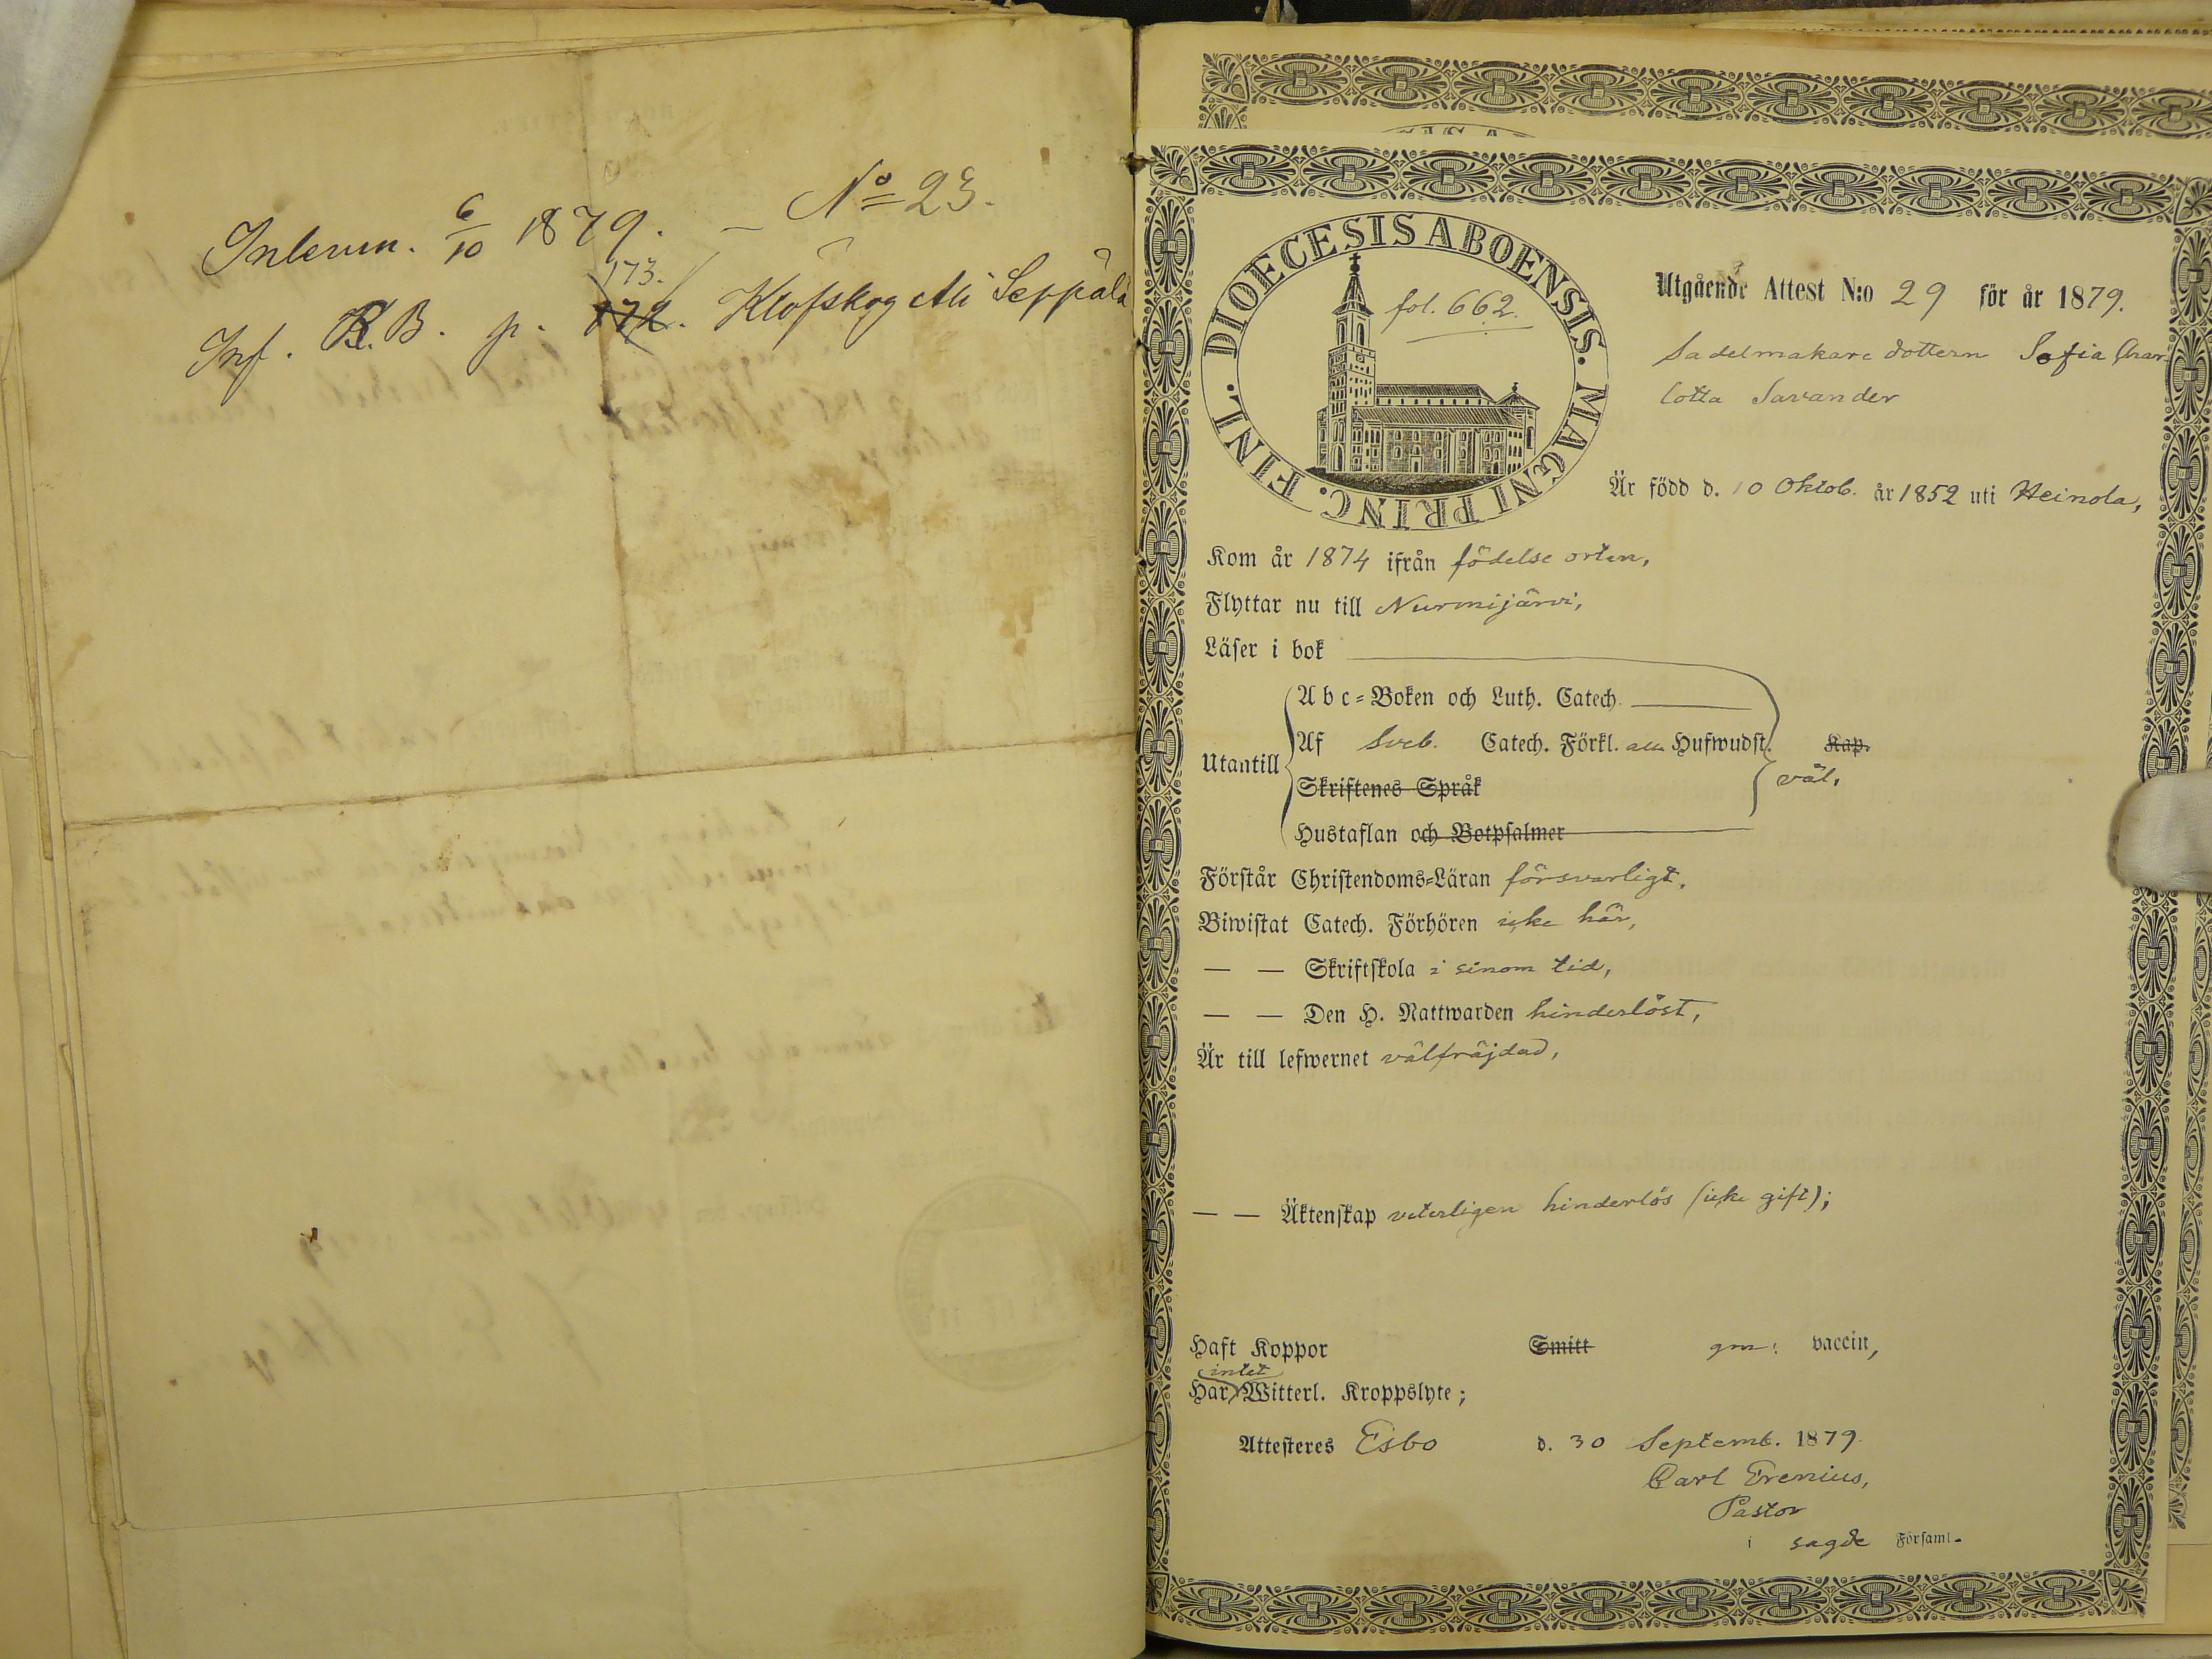 Inlemn. 6/10 1879. – No 23.
173.
Inf. K.B. p. 172. Klöfskog Ali Seppälä
DIOECESIS ABOENSIS. MAGNI PRINC. FINL.
fol. 662.
Utgående Attest N:o 29 för år 1879.
Sadelmakare dottern Sofia Char-
lotta Savander
Är född d. 10 Oktob. år 1852 uti Heinola,
Kom år 1874 ifrån födelse orten,
Flyttar nu till Nurmijärvi,
Läser i bok
Utantill
Abc=Boken och Luth. Catech.
Af Sveb. Catech. Förkl. alla Hufwudst. Kap.
väl.
Skriftenes Språk
Hustaflan och Botpsalmer
Förstår Christendoms=Läran försvarligt,
Biwistat Catech. Förhören icke här,
— — Skriftskola i sinom tid,
— — Den H. Nattwarden hinderlöst,
Är till lefwernet välfräjdad,
— — Äktenskap veterligen hinderlös (icke gift);
Haft Koppor Smitt gm: vaccin,
intet
Har Witterl. Kroppslyte;
Attesteres Esbo d. 30 Septemb. 1879
Carl Erenius,
Pastor
i sagde Församl.